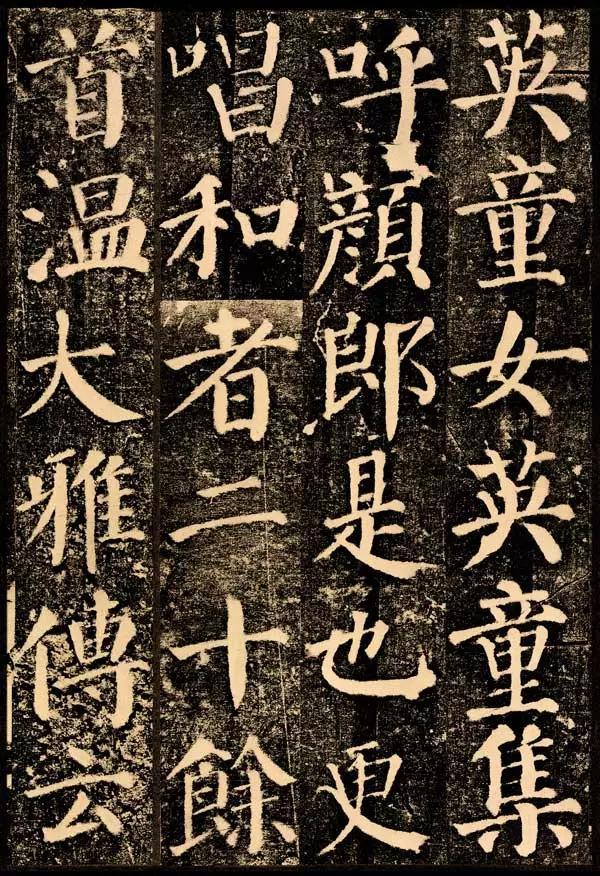 英童女英童集
呼顏郎是也更
唱和者二十餘
首温大雅傳云